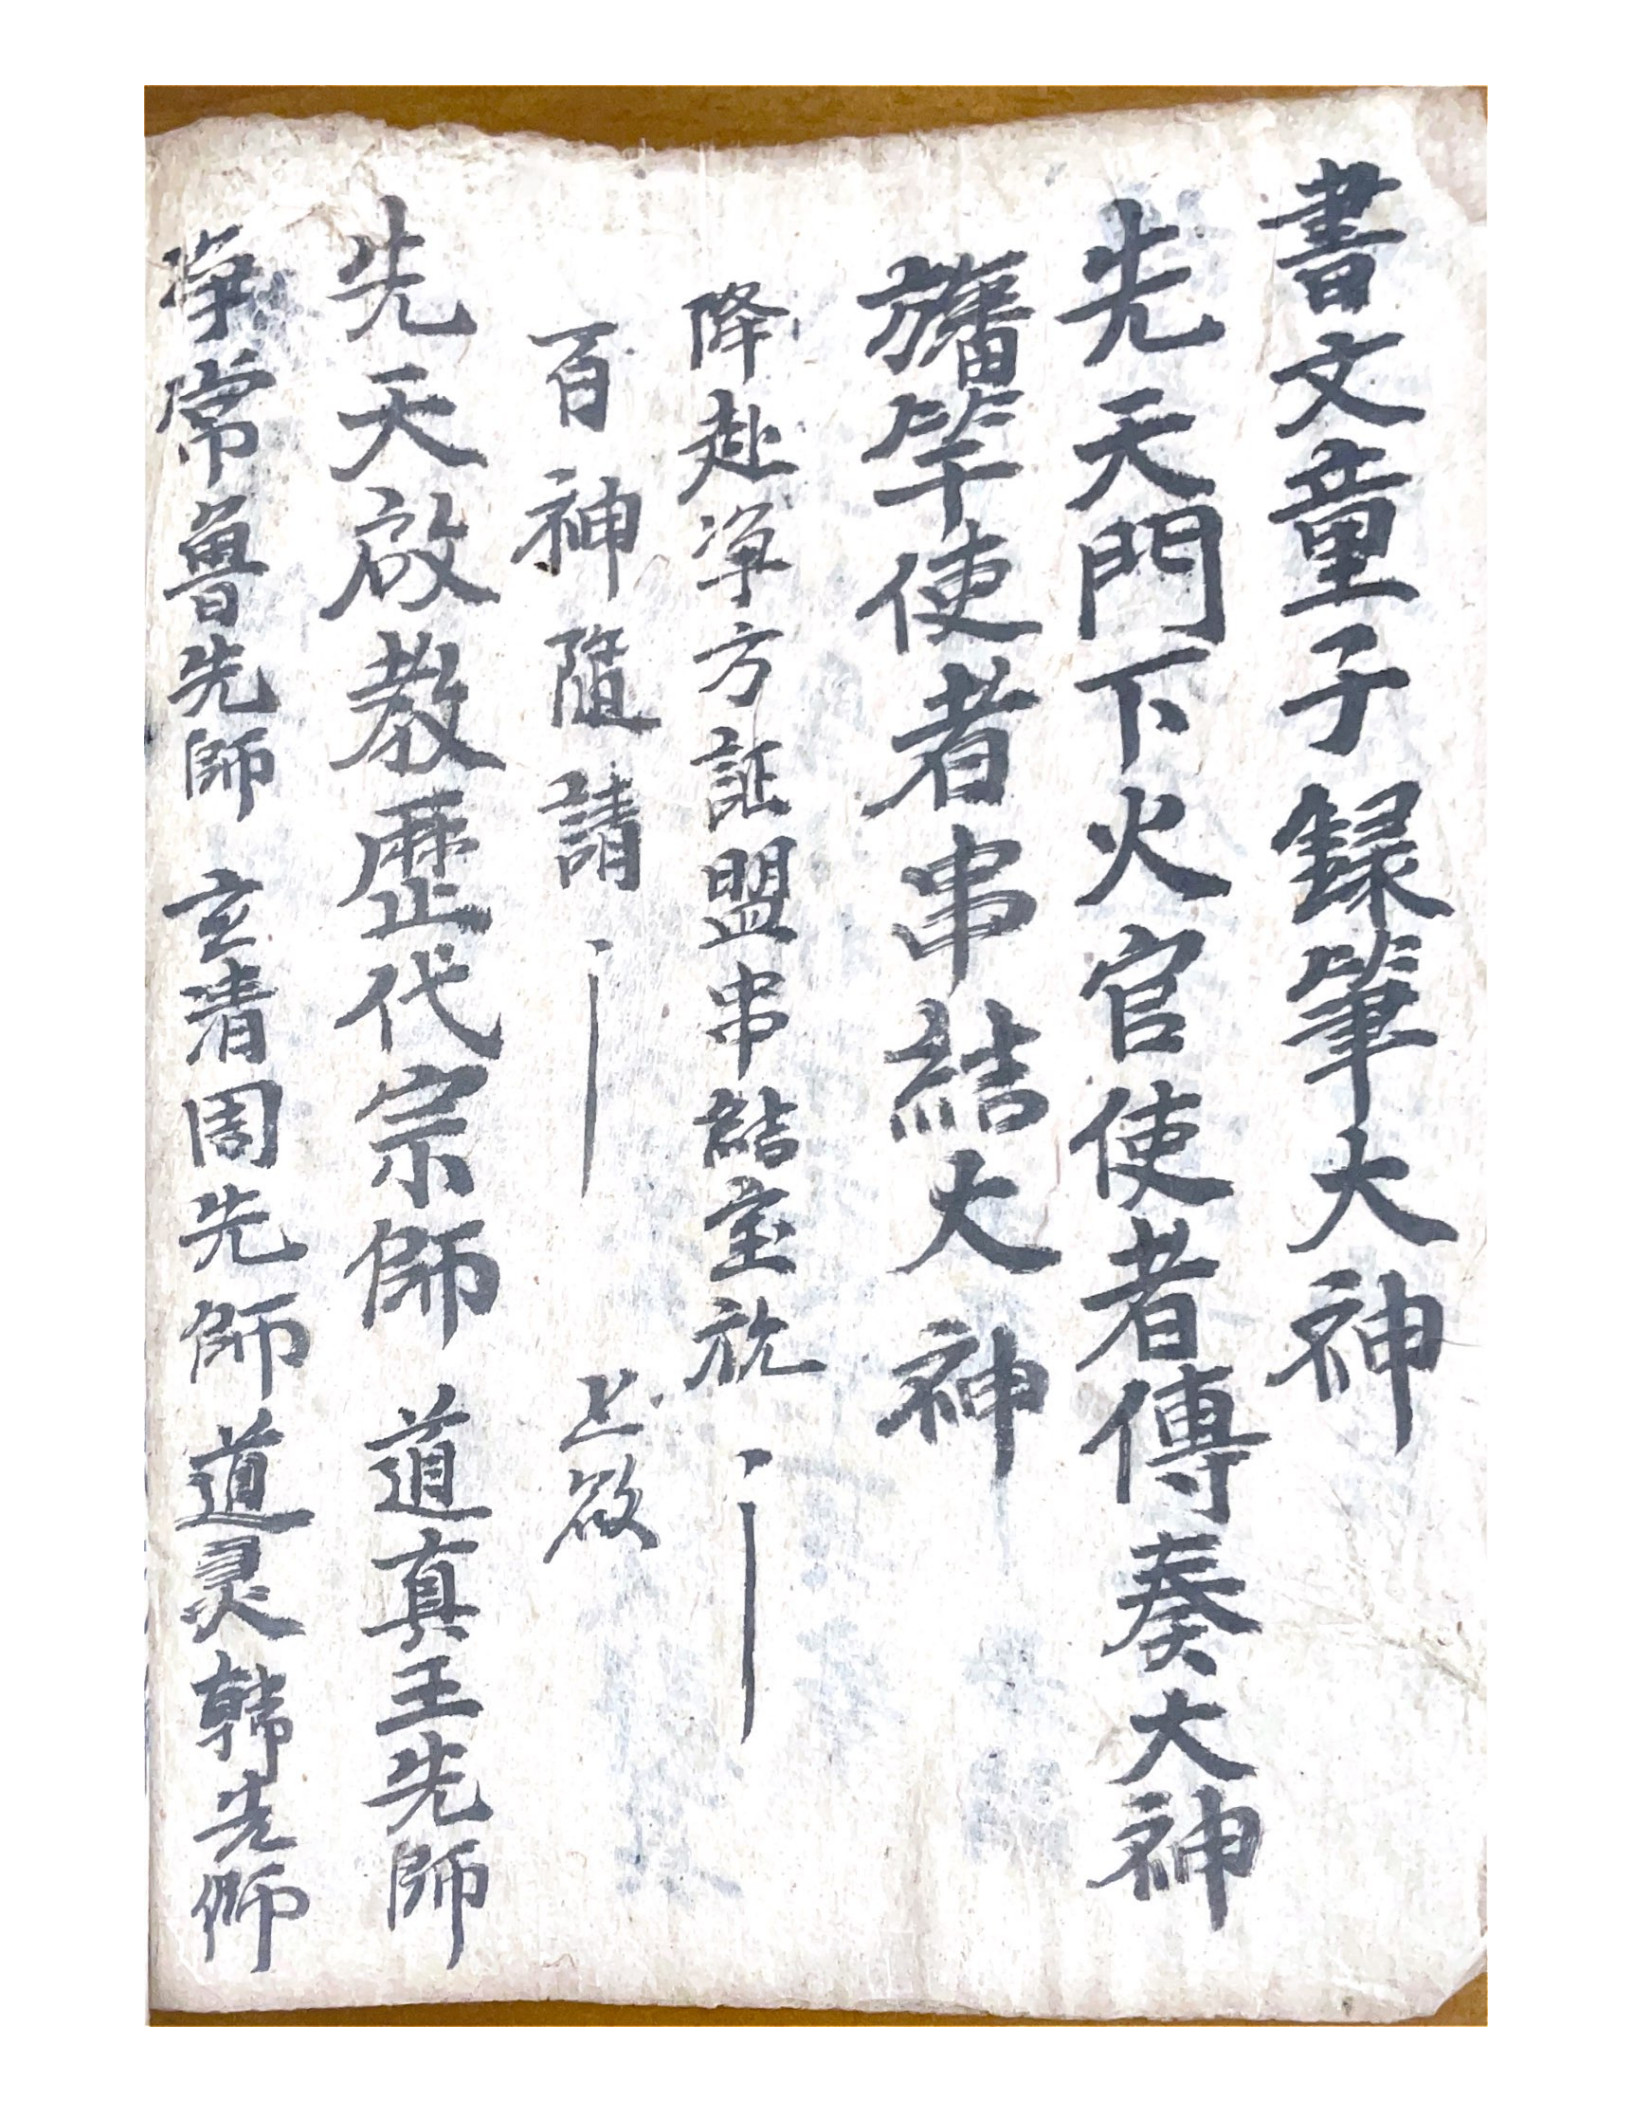 書文童子録筆大神
先天門下火官使者傳奏大神
旛竿使者串結大神
降赴淨方証盟串結室旒
百神隨請 上啟
先天啟教歷代宗師 道真王先師
淨常魯先師 玄清周先師 道灵韩先师